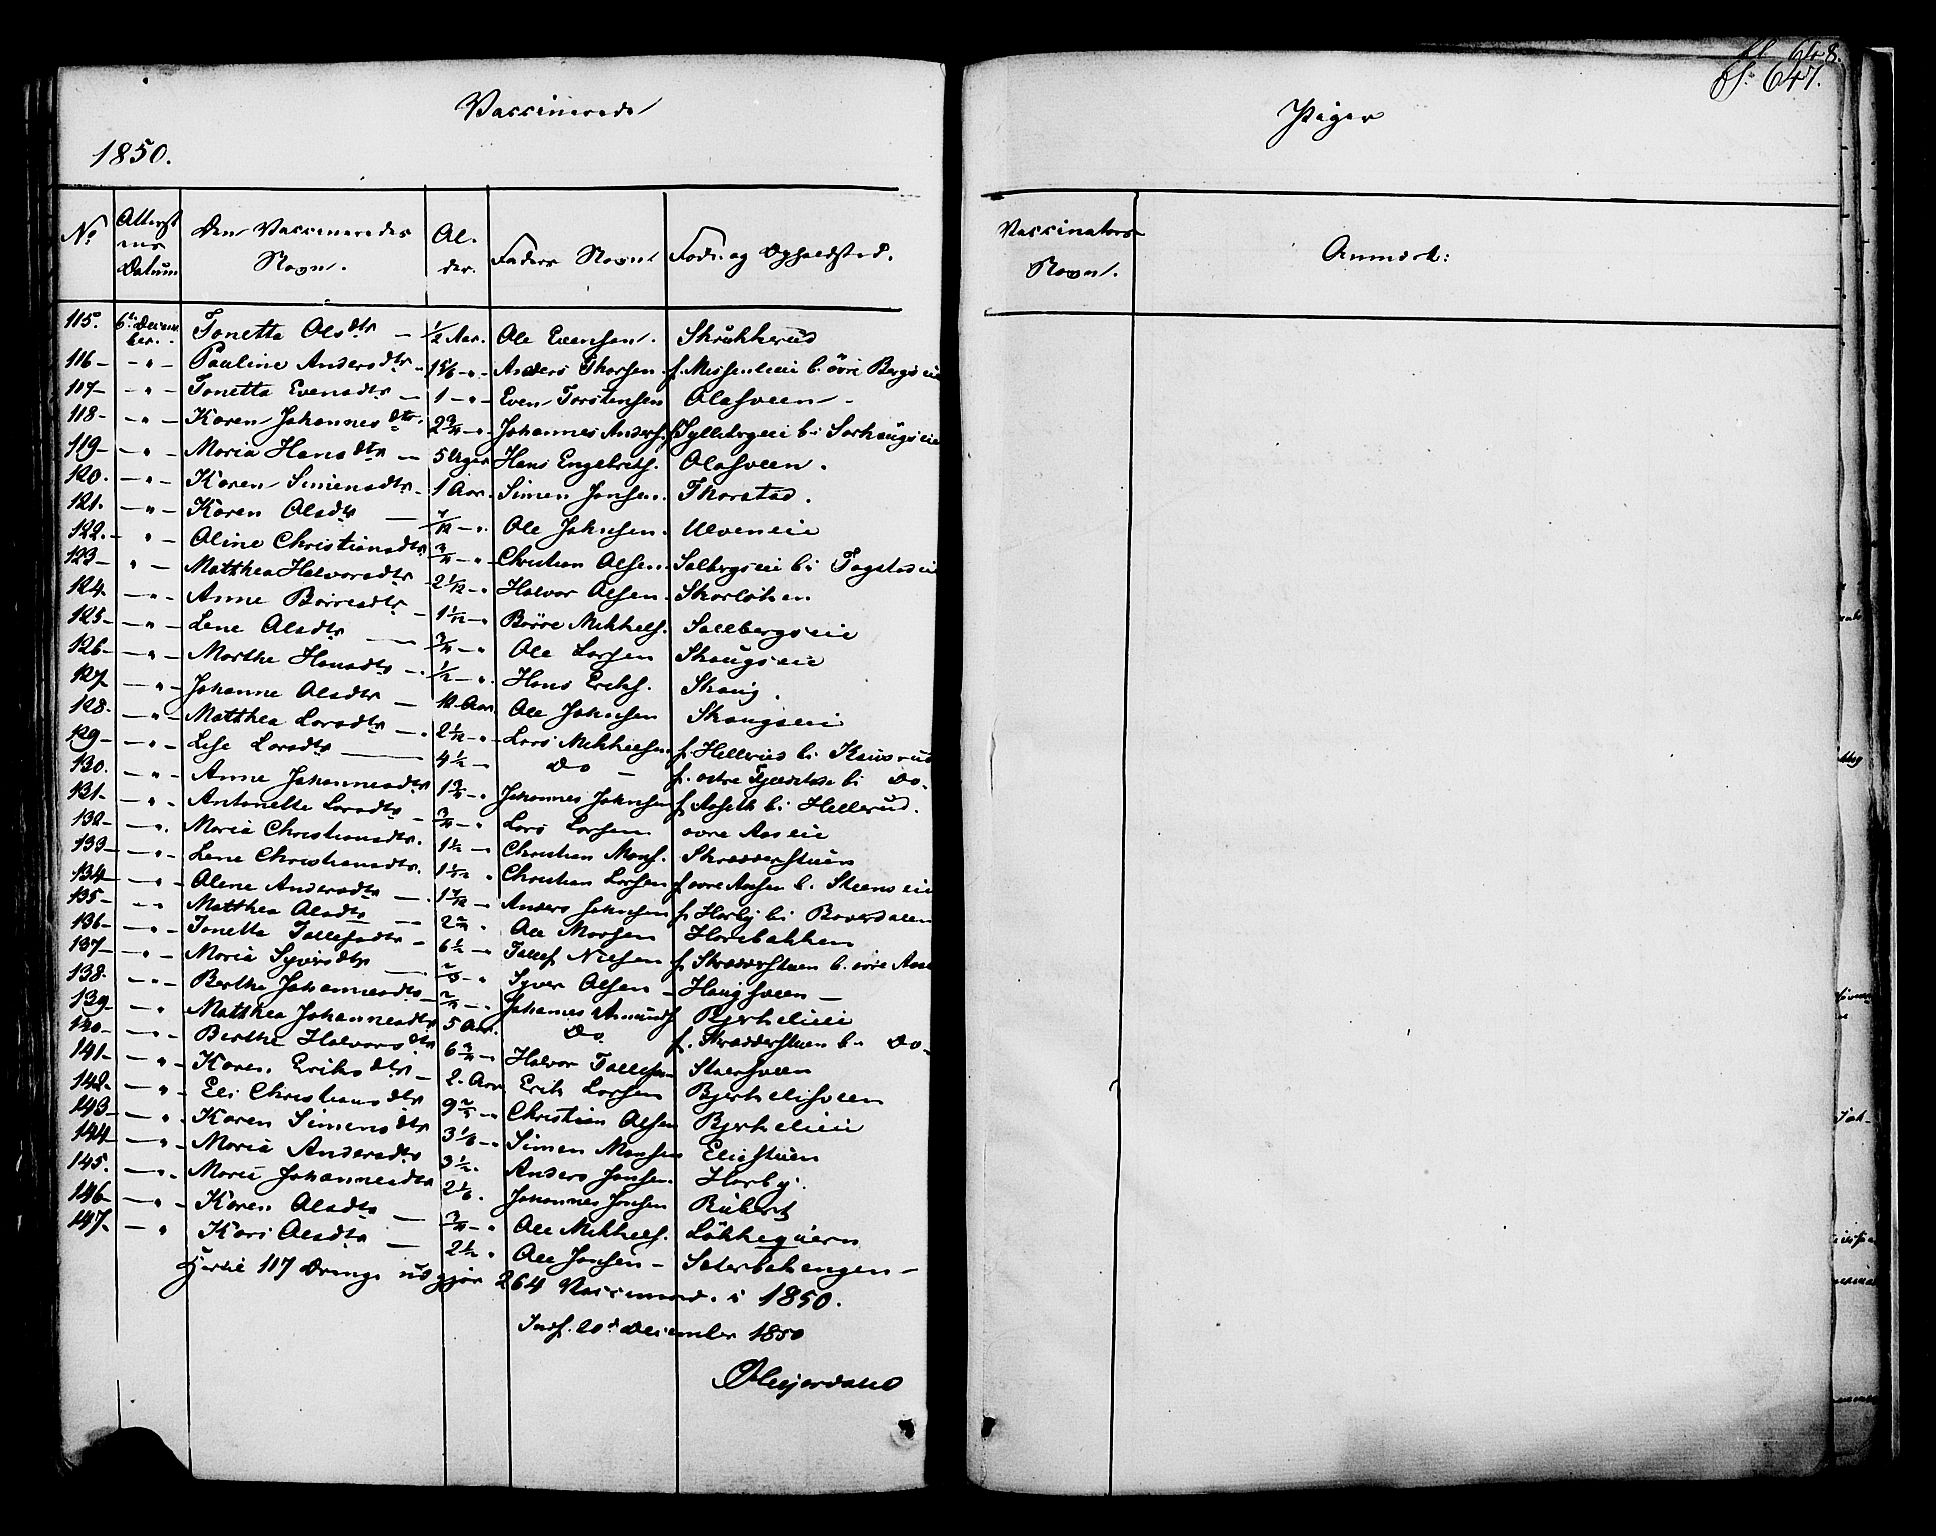 Vaccinerede
1850.
No Attest ens Datum Den Vaccineredes Navn. Al- der. Faders Navn Føde- og Opholdsted.
115. 6te Decem ber. Tonetta Olsdtr — 1/2 Aar. Ole Evensen. Skrukkerud
116 — " — Pauline Andersdtr 1 5/6 — " Anders Thorsen f. Missenlieei b. övre Bergseie
117 — " — Tonetta Evensdtr — 1 — " — Even Torstensen Olasveen —
118 — " — Karen Johannesdtr. 2 3/4 — " Johannes Anders. b. Sørhaugseie
119 — " — Maria Hansdtr — 5 Uger Hans Engebrets. Olasveen.
120. — " — Karen Simensdtr. 1 Aar. Simen Jansen. Thorstad.
121. — " — Karen Olsdtr — 7/12 — " Ole Johnsen. Ulveneie
122. — " — Oline Christiansdtr 3/4 — " Christian Olsen. Solbergseie b. Fagstadeie
123 — " — Matthea Halvorsdtr 2 1/12 — " Halvor Olsen. Skorløken
124. — " — Anne Börresdtr — 1 1/12 — " Börre Mikkels. Solbergseie
125 — " — Lene Olsdtr — 3/4 — " Ole Larsen Skaugseie
126 — " — Marthe Hansdtr — 1/2 — " Hans Eriks. Skaug.
127 — " — Johanne Olsdtr — 12 Aar Ole Johnsen Skaugseie
128. — " — Matthea Larsdtr — 2 1/12 — " Lars Mikkelsen f. Hellerud b. Kausrud
129 — " — Lise Larsdtr — 4 1/2 — Do — f. østre Fjeldstad b. Do.
130. — " — Anne Johannesdtr 1 Johannes Johnsen f Aaseth b. Hellerud.
131 — " — Antonette Larsdtr — 3/4 — " Lars Larsen øvre Aaseie
132 — " . Maria Christiansdtr. 1 1/2 — Christian Mons. Skrædderstuen
133 — " — Lene Christiansdtr. 1 1/12 " Christian Larsen f øvre Aasen b. Steenseie
134 — " — Olene Andersdtr — 1 7/12 — Anders Johnsen f. Horby b. Baverdalen
135 — " — Matthea Olsdtr — 2 " Ole Larsen Horebakken
136 — " — Tonetta Tollefsdtr — 6 1/2 — " Tollef Nielsen f. Skrædderstuen b. øvre Aas
137 — " — Maria Syversdtr — " Syver Olsen — Haugsveen —
138. — " — Berthe Johannesdtr — — " Johannes Amunds Bjerkelieei
139 — " — Matthea Johannesdtr 5 Aar. Do. f. Skrædderstuen b. Do —
140 — " — Berthe Halvorsdtr 6 3/4 — " Halvor Tollefsen Staersveen
141 — " — Karen Eriksdtr — 2. Aar Erik Larsen Bjerkelisveen
142. — " — Eli Christiansdtr 9 — " Christian Olsen Bjerkelieei
143 — " — Karen Simensdtr 3 1/6 — " Simen Monsen Eliestuen
144 — " — Maria Andersdtr 3 1/2. Anders Jansen. Horby.
145. — " . Marie Johannesdtr 2 1/6. Johannes Jonsen Rubert
146 — " — Karen Olsdtr — 3/4 — " Ole Mikkels. Løkkeqvern
147. — " Kari Olsdtr — 2 1/2 " Ole Jansen — Seterbakengen —
Hertil 117 Drenge udgjør 264 Vaccinered. i 1850.
Indf. 20de December 1850
fl. 648.
fl. 647.
Piger
Vaccinators Navn. Anmærk: